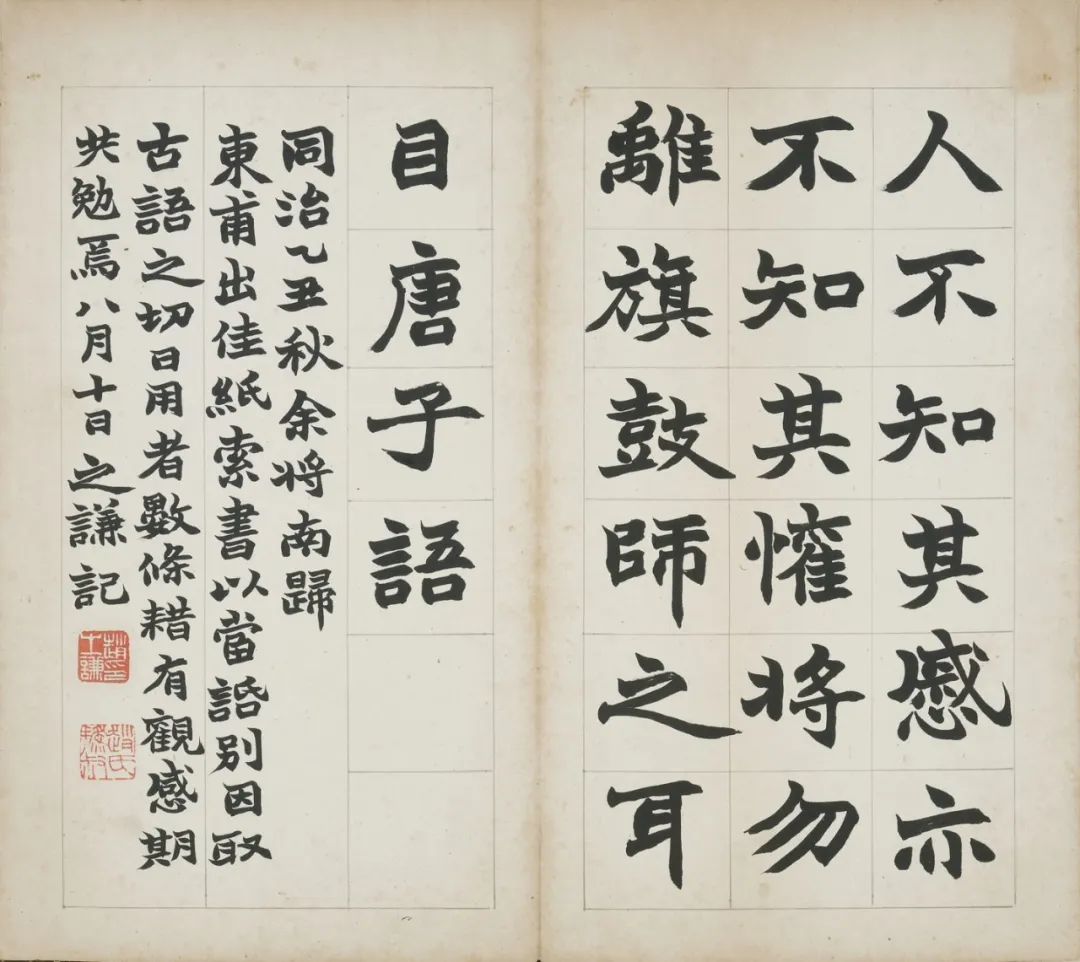 人不知其慼亦
不知其懽將勿
離旗鼓師之耳
目唐子語
同治乙丑秋余將南歸
東甫出佳紙索書以當話別因取
古語之切日用者數條耤有觀感期
共勉焉八月十日之謙記